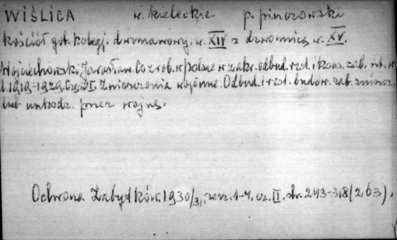 WIŚLICA w. kieleckie p. pinczowski
kościół got. kolegj. dwunawowy w. XIV z dzwonnicą w. XV.
Wojciechowski Jarosław. Co zrob. w Polsce w zakr. odbud. rest. i kons. zab. szt. w
l. 1919-1929. Część I. Zniszczenia wojenne. Odbud. i rest. budow. zab. zniszcz.
lub uszkodz. przez wojnę.
Ochrona Zabytków. 1930/31, zesz. 1-4, cz. II, str. 243-318 (263).